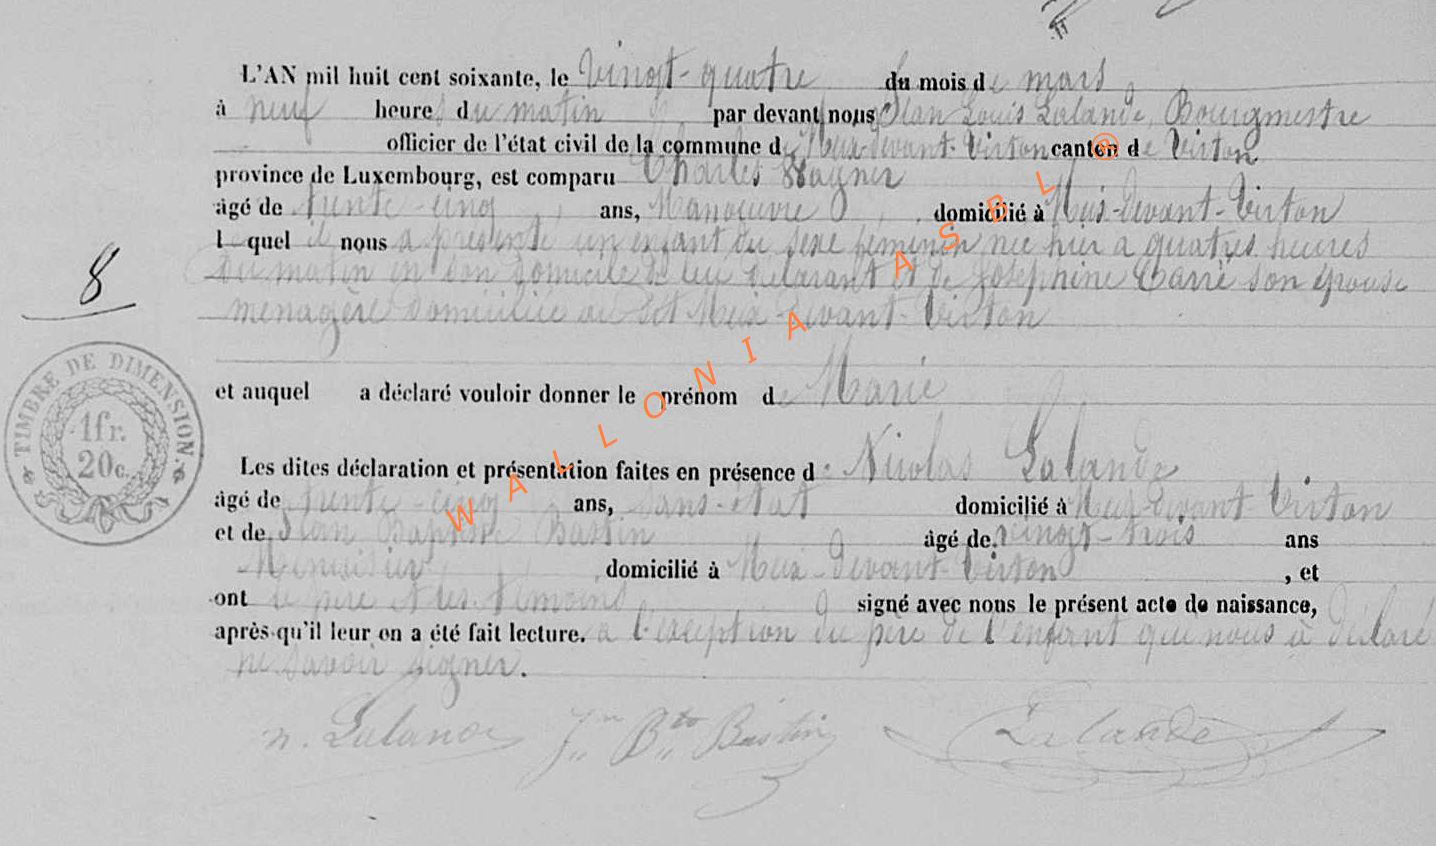 L'AN mil huit cent soixante, le vingt-quatre du mois de mars
à neuf heures du matin par devant nous Jean Louis Lalande, Bourgmestre
officier de l'état civil de la commune de Meix-devant-Virton canton de Virton
province de Luxembourg, est comparu Charles Wagner
âgé de trente-cinq ans, Manœuvre domicilié à Meix-devant-Virton
l quel il nous a présenté un enfant du sexe féminin née hier à quatres heures
du matin en son domicile de lui déclarant et de Joséphine Carré son épouse
8
menagère domiciliée au dit Meix-devant-Virton
TIMBRE DE DIMENSION
1fr.
20c.
et auquel a déclaré vouloir donner le prénom de Marie
Les dites déclaration et présentation faites en présence de Nicolas Lalande
âgé de trente-cinq ans, sans-état domicilié à Meix-devant Virton
et de Jean Baptiste Bastin âgé de vingt-trois ans
Menuisier domicilié à Meix-devant-Virton , et
ont le père et les témoins signé avec nous le présent acte de naissance,
après qu'il leur en a été fait lecture. a l'exception du père de l'enfant que nous a déclaré
ne savoir signer.
n. Lalande Jn Bte Bastin Lalande
WALLONIA ASBL ®